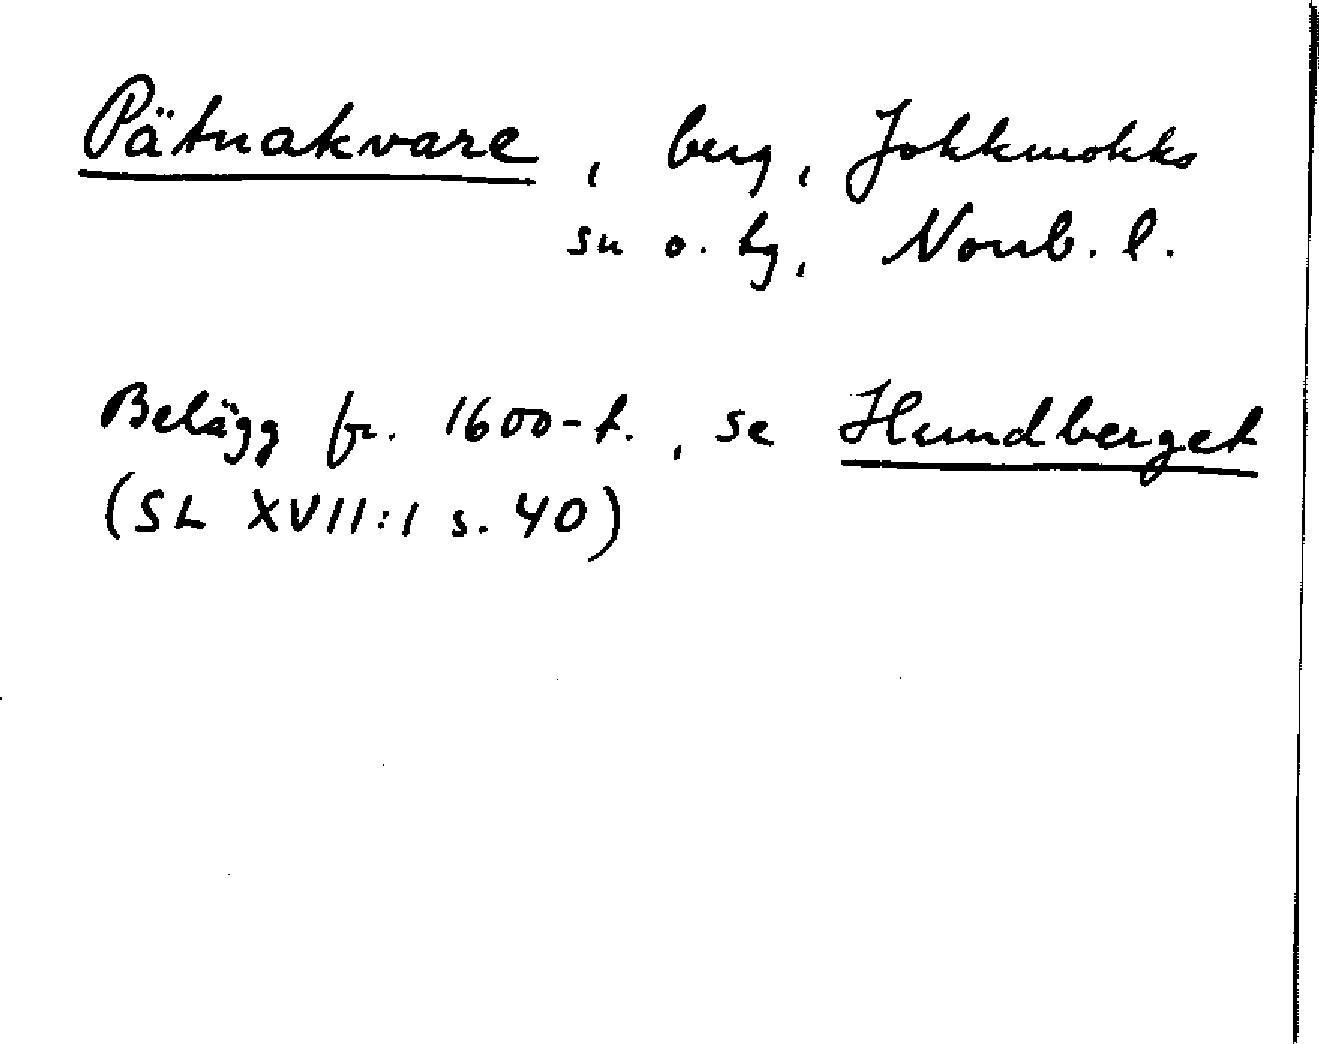 Pätnakvare, berg, Jokkmokks
sn o. tg, Norrb. l.
Belägg fr. 1600-t., se Hundberget
(SL XVII:1 s. 40)